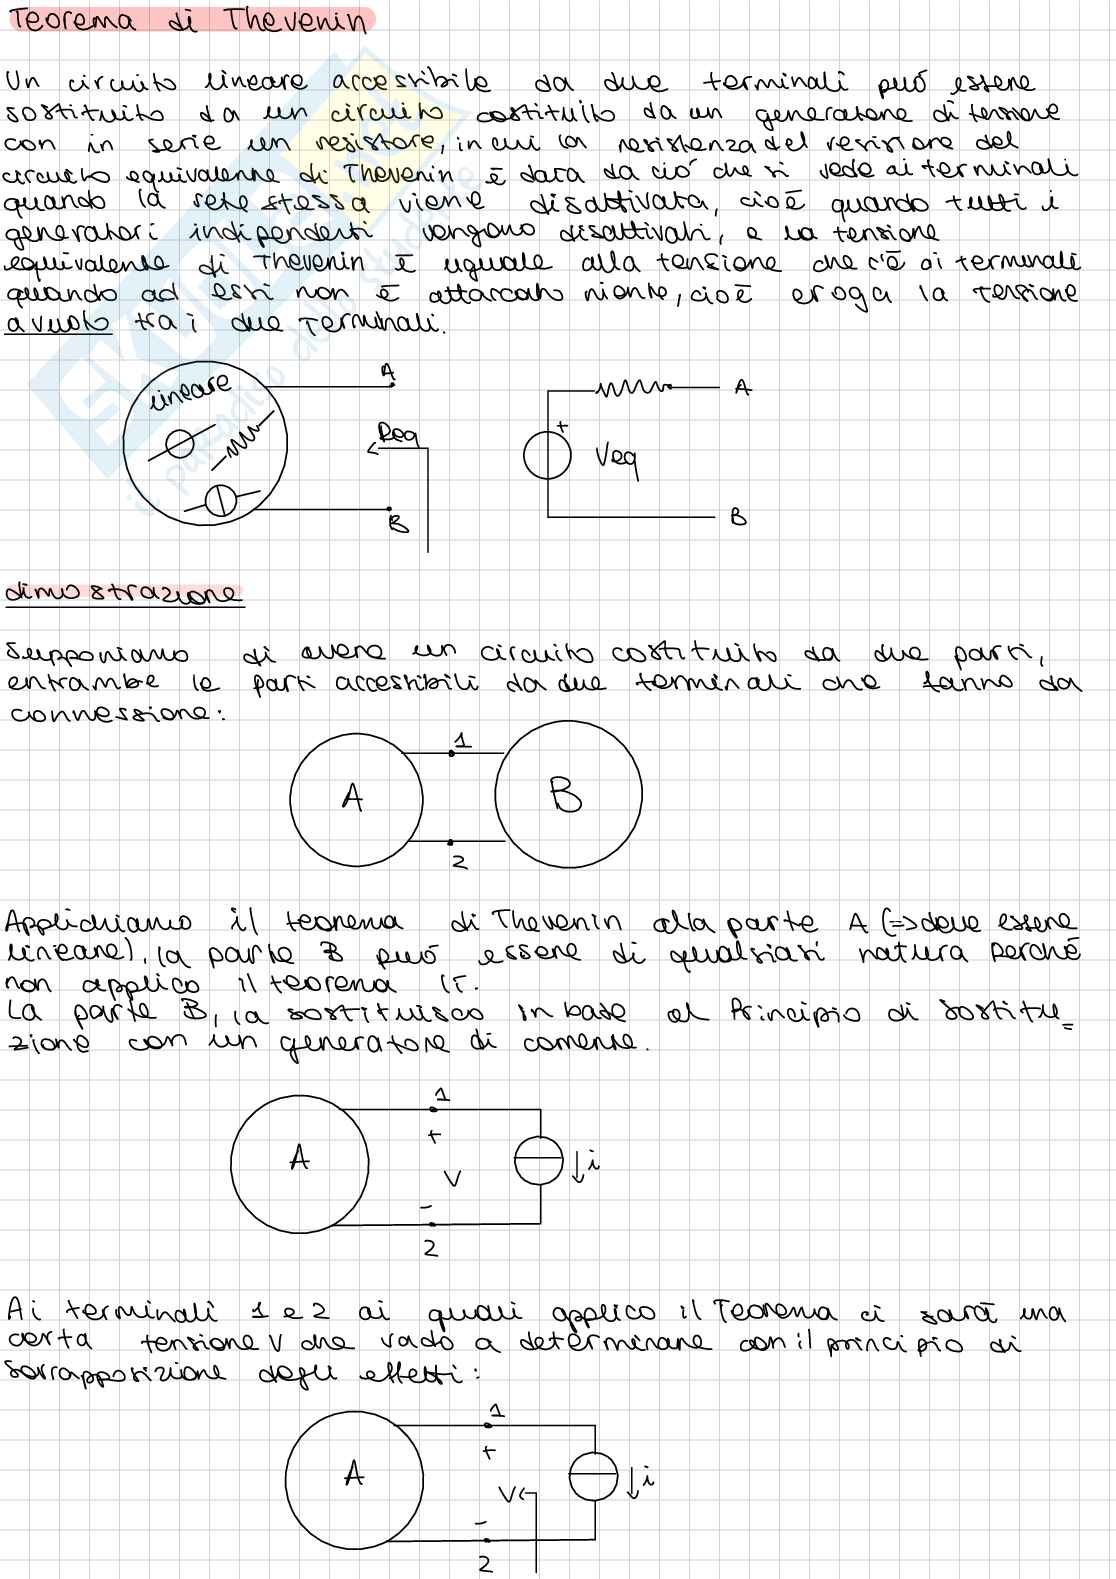 Teorema di Thevenin
Un circuito lineare accessibile da due terminali può essere
sostituito da un circuito costituito da un generatore di tensione
con in serie un resistore, in cui la resistenza del resistore del
circuito equivalente di Thevenin è data da ciò che si vede ai terminali
quando la rete stessa viene disattivata, cioè quando tutti i
generatori indipendenti vengono disattivati, e la tensione
equivalente di Thevenin è uguale alla tensione che c'è ai terminali
quando ad essi non è attaccato niente, cioè eroga la tensione
a vuoto tra i due terminali.
lineare
A
Req
B
+
Veq
A
B
dimostrazione
Supponiamo di avere un circuito costituito da due parti,
entrambe le parti accessibili da due terminali che fanno da
connessione:
A
1
B
2
Applichiamo il teorema di Thevenin alla parte A (=> deve essere
lineare), la parte B può essere di qualsiasi natura perché
non applico il teorema lì.
La parte B, la sostituisco in base al Principio di sostitu=
zione con un generatore di corrente.
1
+
A
V
i
-
2
Ai terminali 1 e 2 ai quali applico il Teorema ci sarà una
certa tensione V che vado a determinare con il principio di
sovrapposizione degli effetti:
1
+
A
V
i
-
2